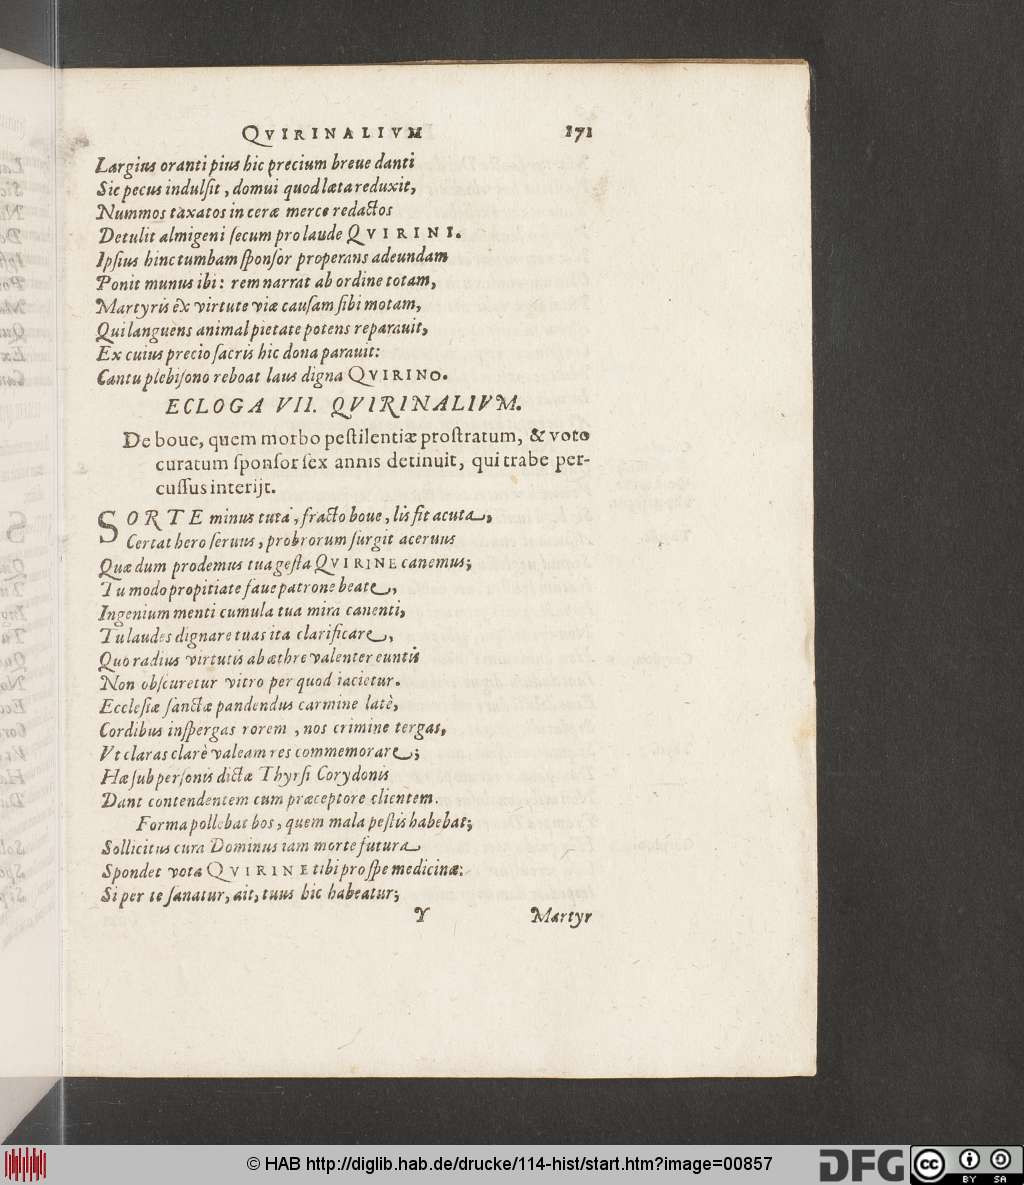 QVIRINALIVM 171
Largius oranti pius hic precium breue danti
Sic pecus indulsit, domui quod læta reduxit,
Nummos taxatos in ceræ merce redactos
Detulit almigeni secum pro laude QVIRINI.
Ipsius hinc tumbam sponsor properans adeundam
Ponit munus ibi: rem narrat ab ordine totam,
Martyris èx virtute viæ causam sibi motam,
Qui languens animal pietate potens reparauit,
Ex cuius precio sacris hic dona parauit:
Cantu plebisono reboat laus digna QVIRINO.
ECLOGA VII. QVIRINALIVM.
De boue, quem morbo pestilentiæ prostratum, & voto
curatum sponsor sex annis detinuit, qui trabe per-
cussus interijt.
SORTE minus tuta, fracto boue, lis fit acuta,
Certat hero seruus, probrorum surgit aceruus
Quæ dum prodemus tua gesta QVIRINE canemus;
Tu modo propitiate faue patrone beate,
Ingenium menti cumula tua mira canenti,
Tu laudes dignare tuas ita clarificare,
Quo radius virtutis ab æthre valenter euntis
Non obscuretur vitro per quod iacietur.
Ecclesiæ sanctæ pandendus carmine latè,
Cordibus inspergas rorem, nos crimine tergas,
Vt claras clarè valeam res commemorare;
Hæ sub personis dictæ Thyrsi Corydonis
Dant contendentem cum præceptore clientem.
Forma pollebat bos, quem mala pestis habebat;
Sollicitus cura Dominus iam morte futura
Spondet vota QVIRINE tibi pro spe medicinæ:
Si per te sanatur, ait, tuus hic habeatur;
Y Martyr
© HAB http://diglib.hab.de/drucke/114-hist/start.htm?image=00857
DFG
cc BY SA